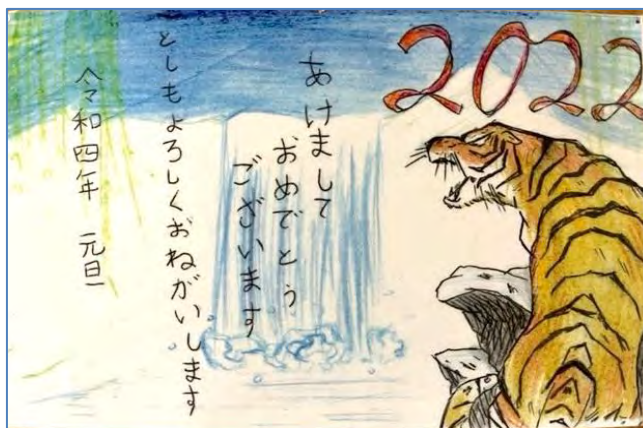 2022
あけまして
おめでとう
ございます
としもよろしくおねがいします
令和四年 元旦